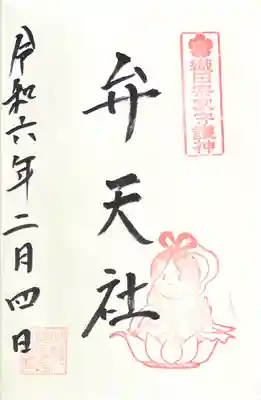 織田家文字護神
弁天社
令和六年二月四日